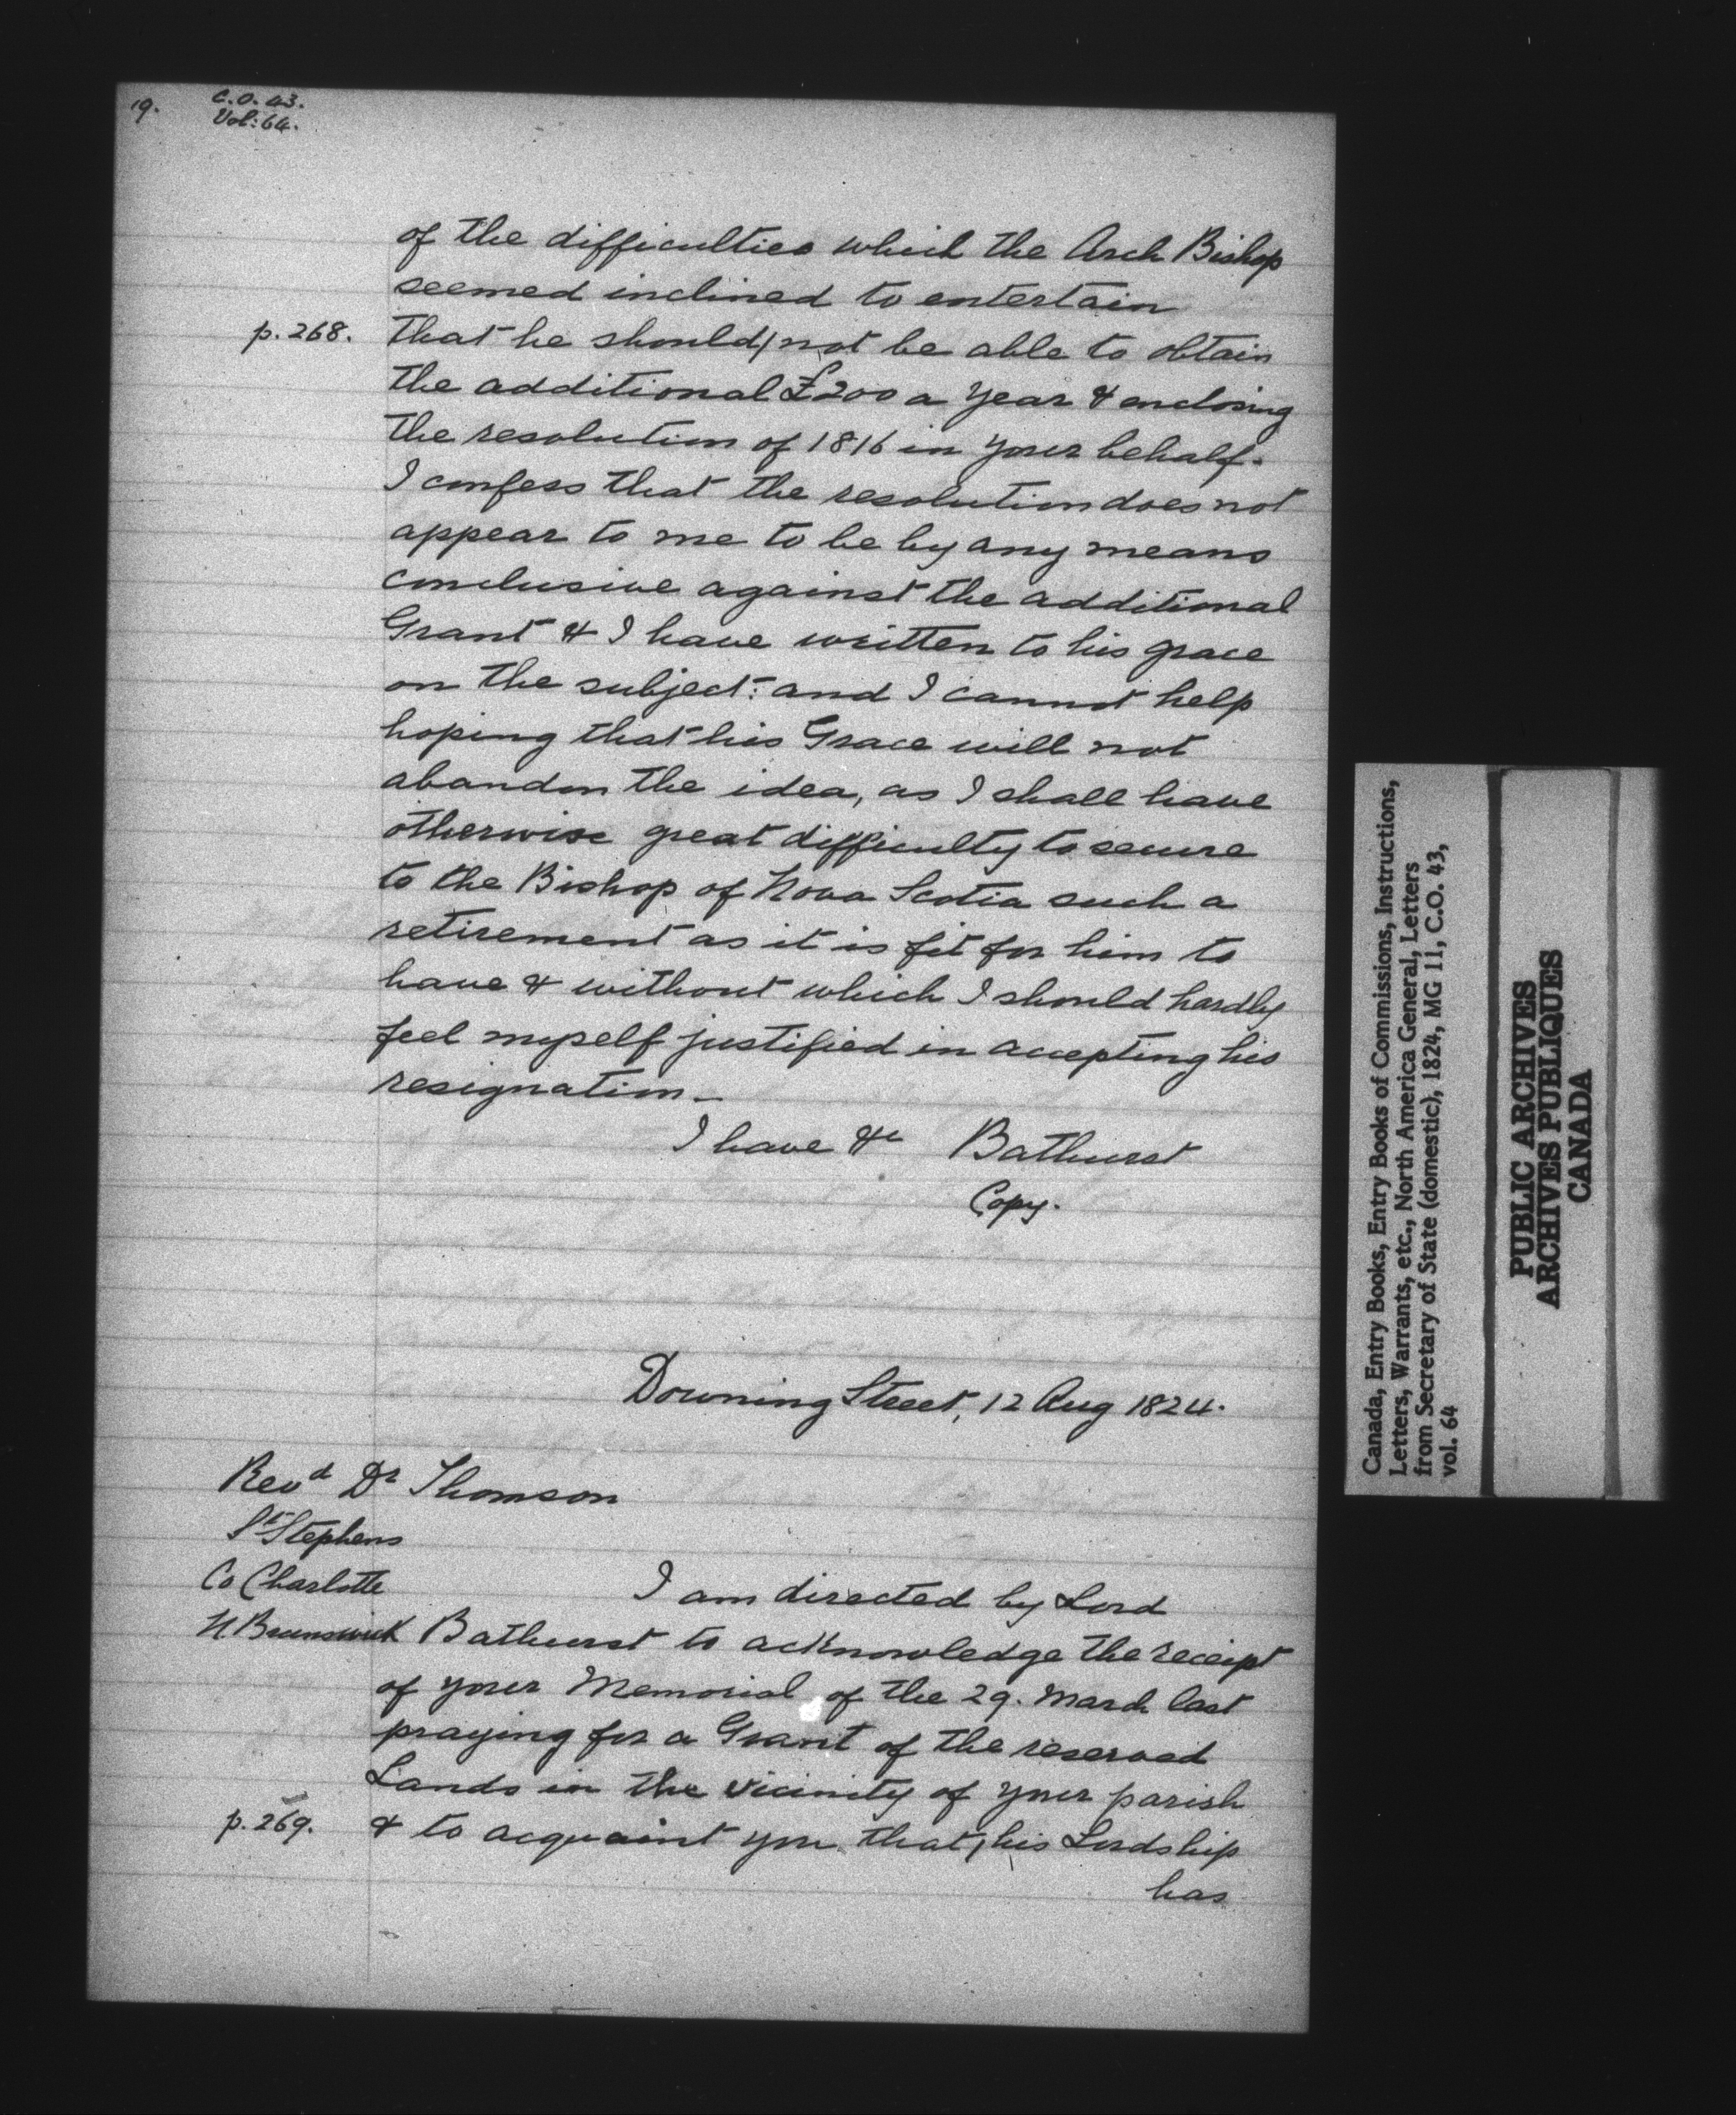 19.
C.O. 43.
Vol: 64.
of the difficulties which the Arch Bishop
seemed inclined to entertain
p. 268.
that he should/not be able to obtain
the additional £200 a year & enclosing
the resolution of 1816 in your behalf.
I confess that the resolution does not
appear to me to be by any means
conclusive against the additional
Grant & I have written to his grace
on the subject: and I cannot help
hoping that his Grace will not
abandon the idea, as I shall have
otherwise great difficulty to secure
to the Bishop of Nova Scotia such a
retirement as it is fit for him to
have & without which I should hardly
feel myself justified in accepting his
resignation_
I have &c Bathurst
Copy.
Downing Street, 12 Aug 1824.
Revd Dr Thomson
St Stephens
Co Charlotte
N. Brunswick
I am directed by Lord
Bathurst to acknowledge the receipt
of your Memorial of the 29. March last
praying for a Grant of the reserved
Lands in the vicinity of your parish
p. 269.
& to acquaint you that/his Lordship
has
Canada, Entry Books, Entry Books of Commissions, Instructions,
Letters, Warrants, etc., North America General, Letters
from Secretary of State (domestic), 1824, MG 11, C.O. 43,
vol. 64
PUBLIC ARCHIVES
ARCHIVES PUBLIQUES
CANADA